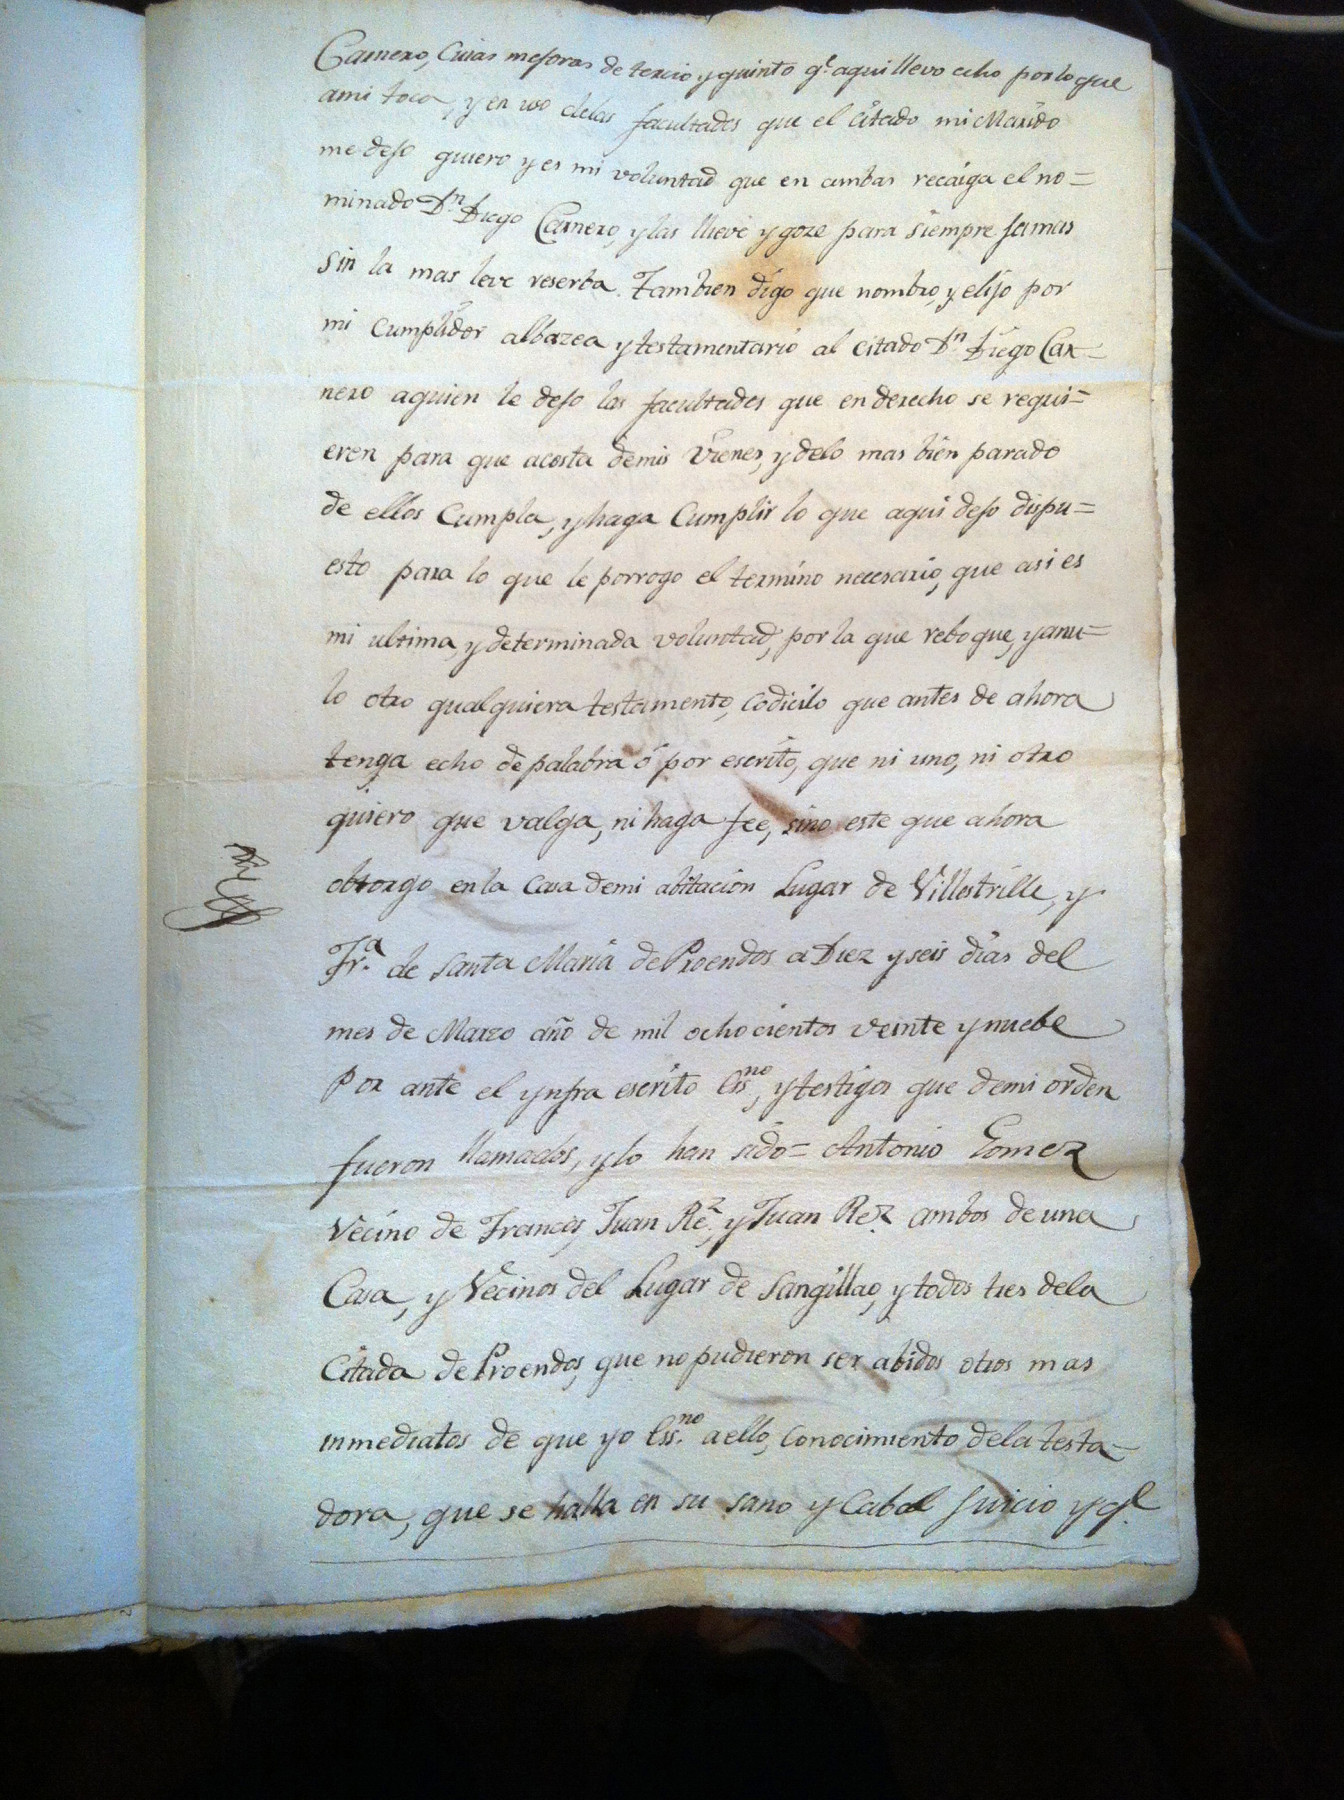 Carnero, Cuias mejoras de tercio y quinto q.e aqui llevo echo por lo que
ami toca, y en uso delas facultades que el citado mi Marido
me dejo quiero y es mi voluntad que en ambas recaiga el no=
minado D.n Diego Carnero, y las lleve y goze para siempre jamas
sin la mas leve reserba. Tambien digo que nombro, y elijo por
mi Cumplidor albazea y testamentario al citado D.n Diego Car=
nero aquien le dejo las facultades que en derecho se requi=
eren para que acosta demis Vienes, y delo mas bien parado
de ellos Cumpla, y haga Cumplir lo que aqui dejo dispu=
esto para lo que le porrogo el termino necesario, que asi es
mi ultima, y determinada voluntad, por la que reboque, y anu=
lo otro qualquiera testamento, Codicilo que antes de ahora
tenga echo de palabra ó por escrito, que ni uno, ni otro
quiero que valga, ni haga fee, sino este que ahora
obtorgo en la Casa demi abitacion Lugar de Villestrille, y
Fr.a de Santa Maria de Proendos a Diez y seis dias del
mes de Marzo año de mil ochocientos veinte y nuebe
Por ante el ynfra escrito Ess.no, y testigos que demi orden
fueron llamados, y lo han sido= Antonio Gomez
Vecino de Frances, Juan Re.z, y Juan Re.z ambos de una
Casa, y Vecinos del Lugar de Sangillao, y todos tres dela
Citada de Proendos, que no pudieron ser abidos otros mas
inmediatos de que yo Ess.no aello, Conocimiento dela testa=
dora, que se halla en su sano y Cabal juicio y q.e